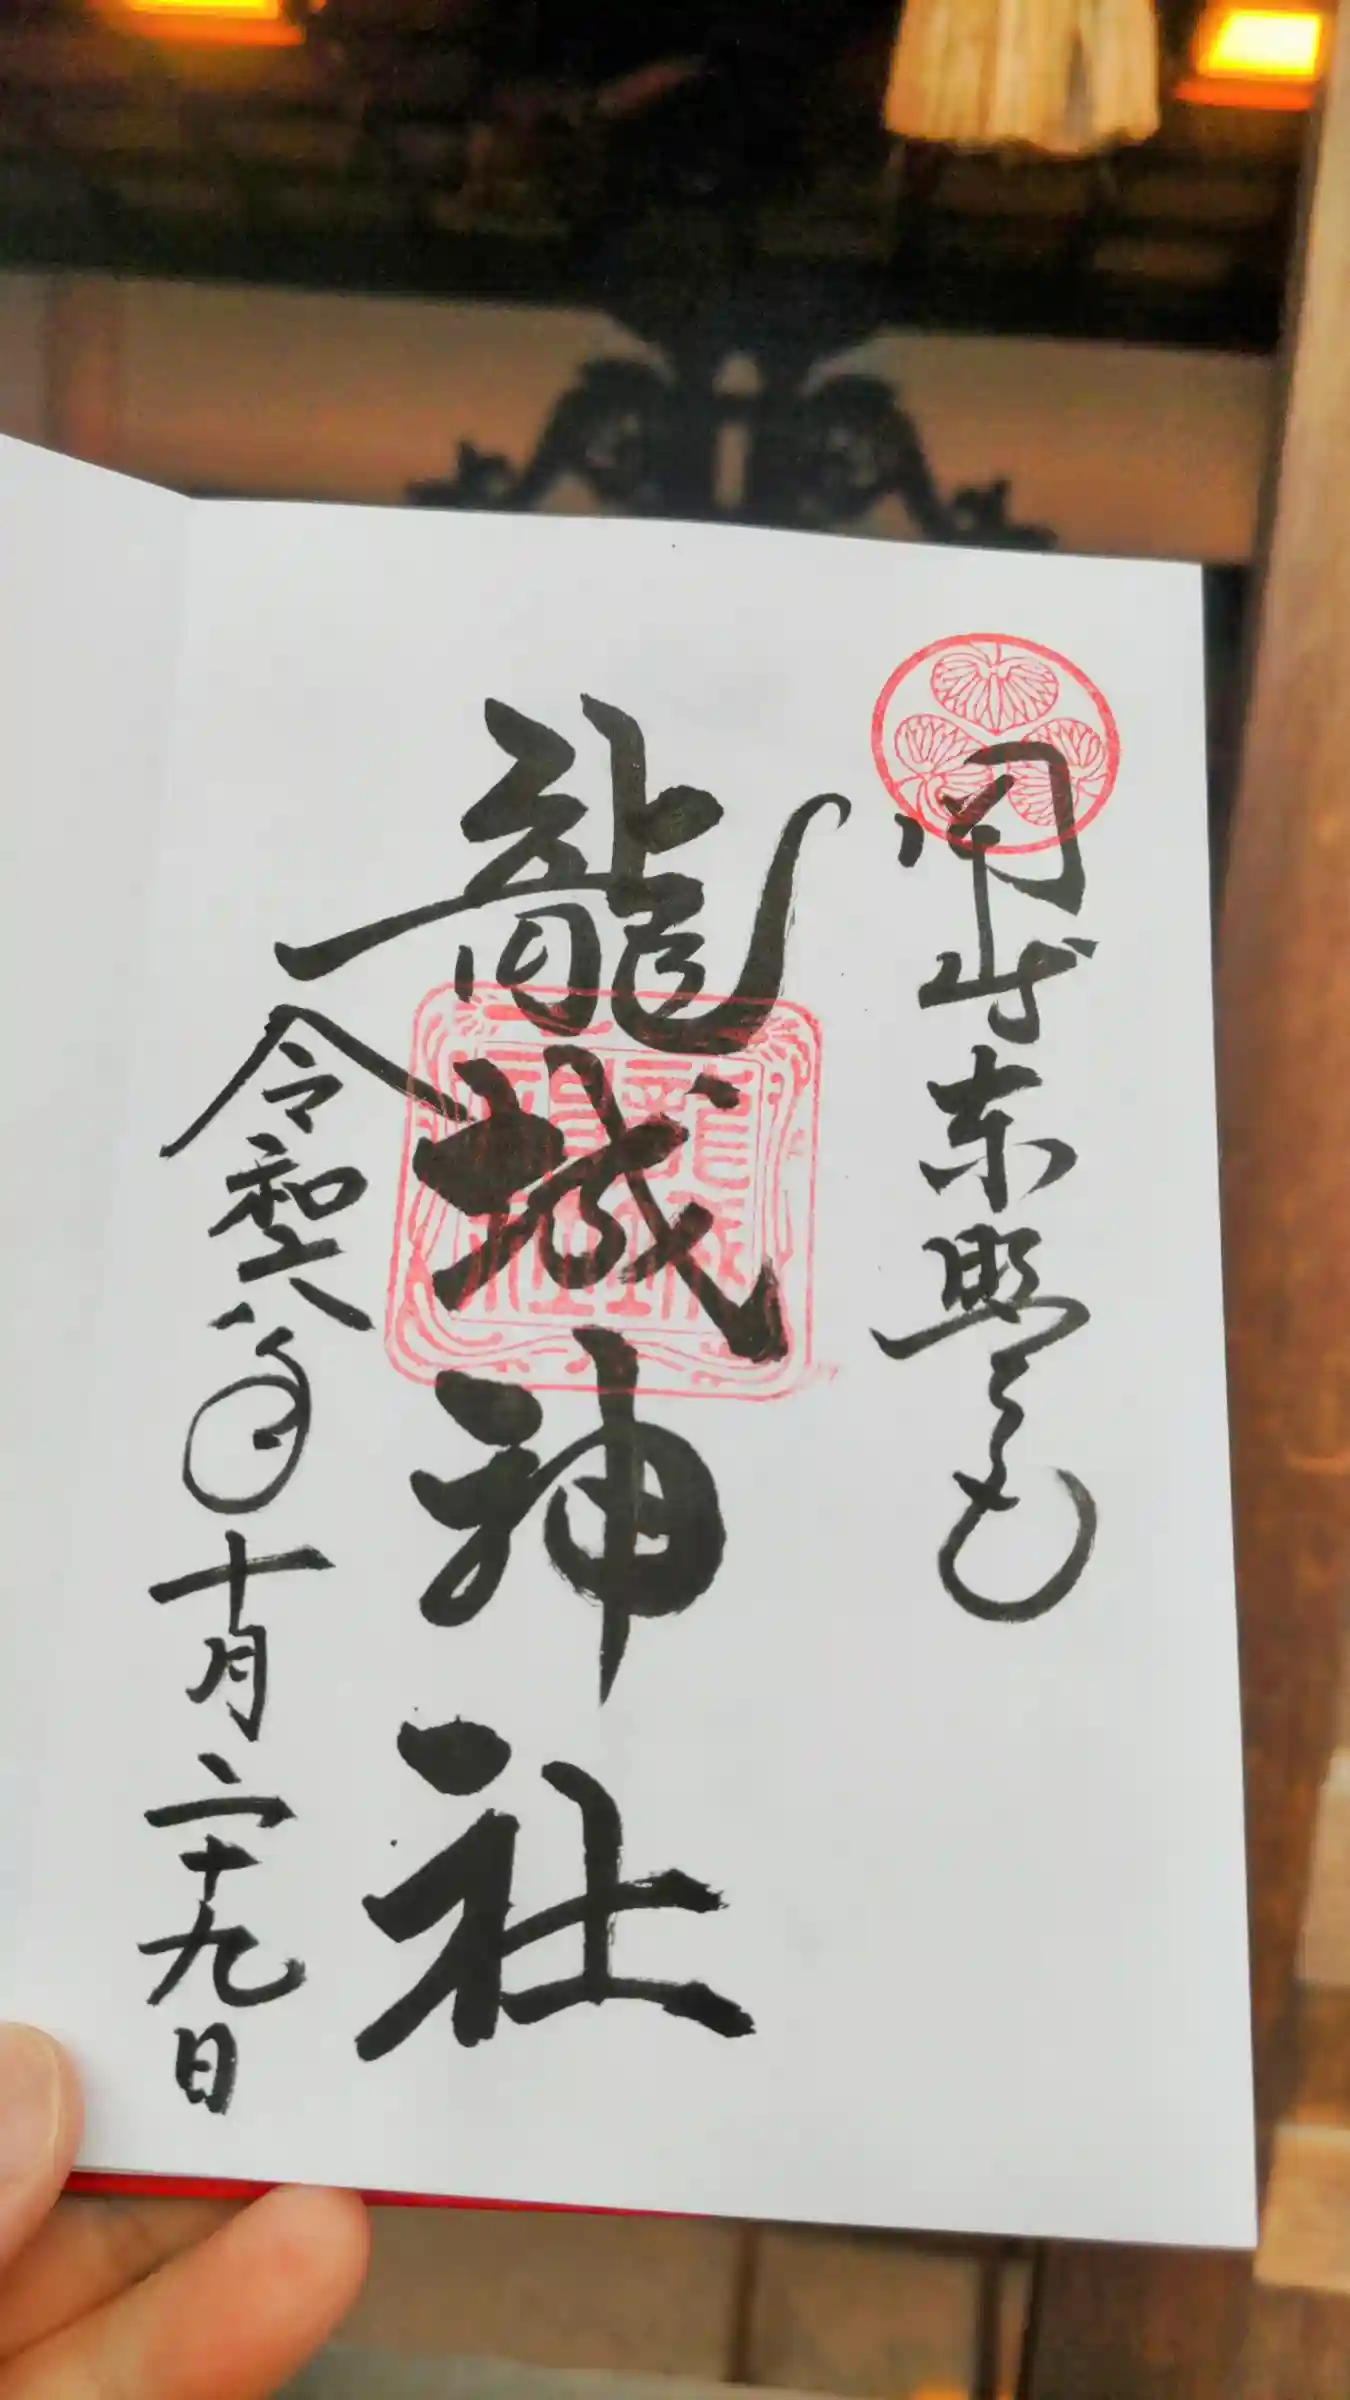 岡崎東照宮
龍城神社
龍城
神社
令和六年十月二十九日